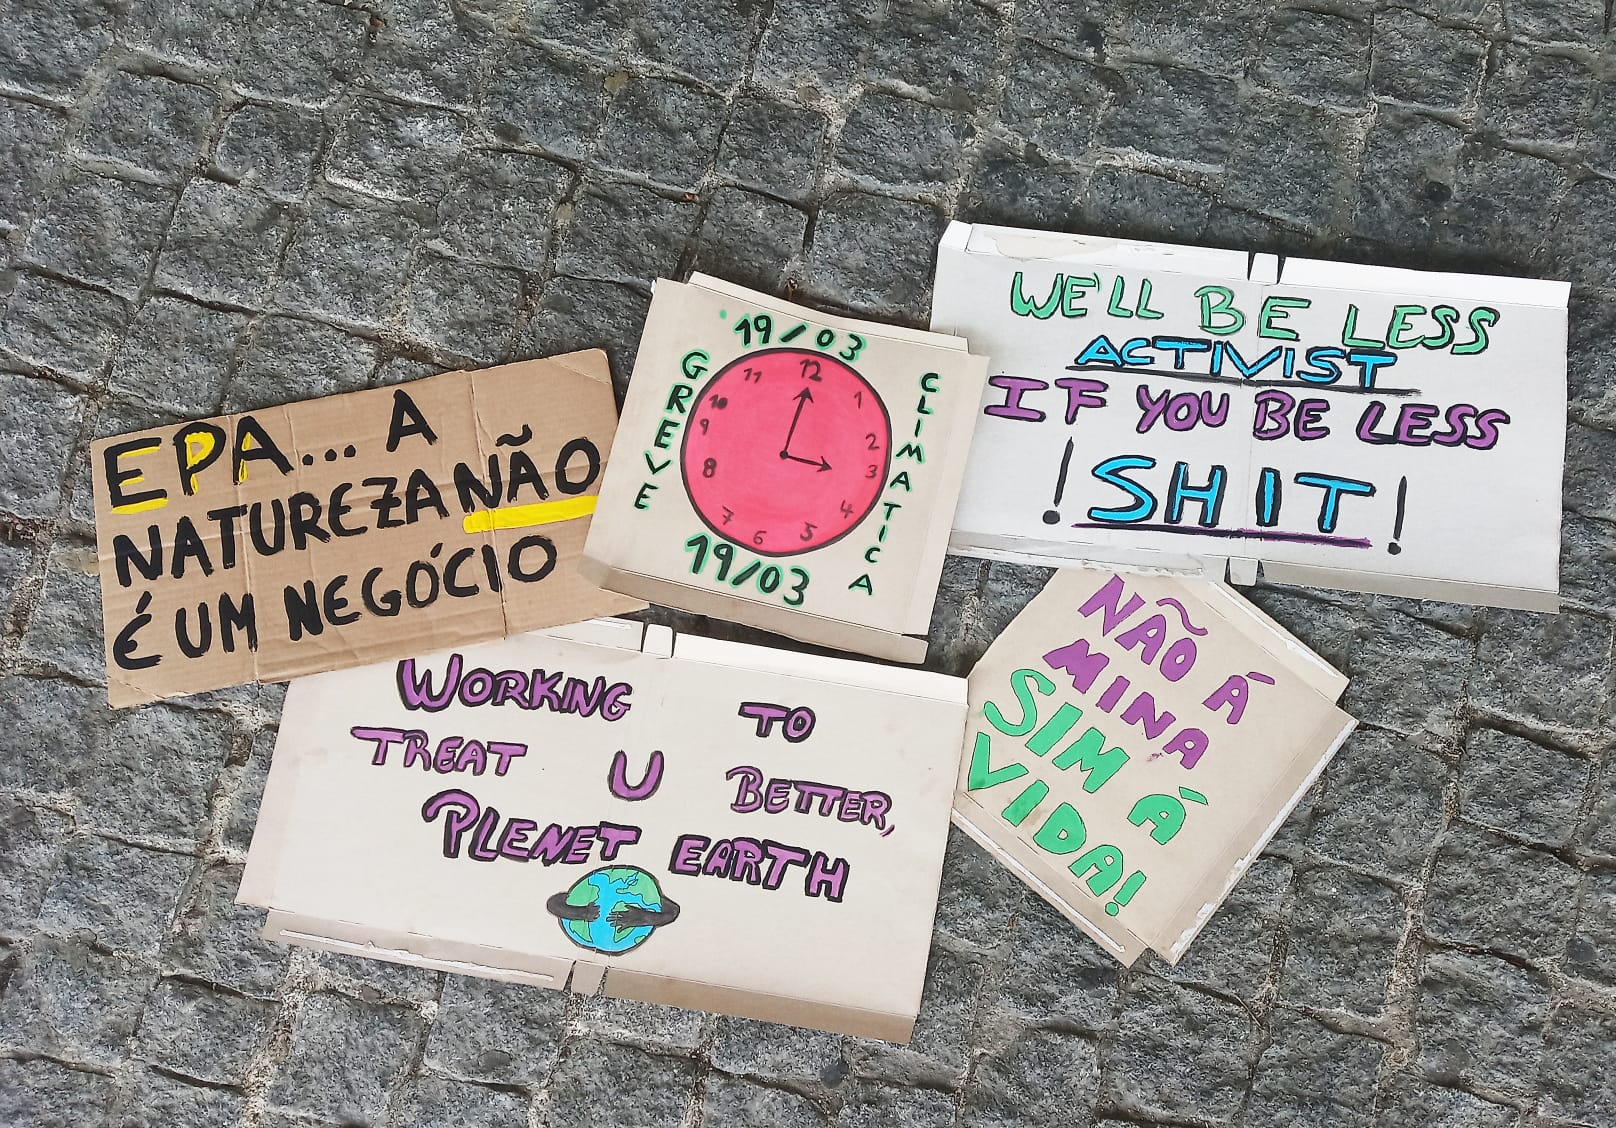 EPA... A
NATUREZA NÃO
É UM NEGÓCIO
19/03
GREVE
CLIMATICA
12
1
2
3
4
5
6
7
8
9
10
11
19/03
WE'LL BE LESS
ACTIVIST
IF YOU BE LESS
!SHIT!
WORKING TO
TREAT U BETTER,
PLENET EARTH
NÃO Á
MINA
SIM Á
VIDA!